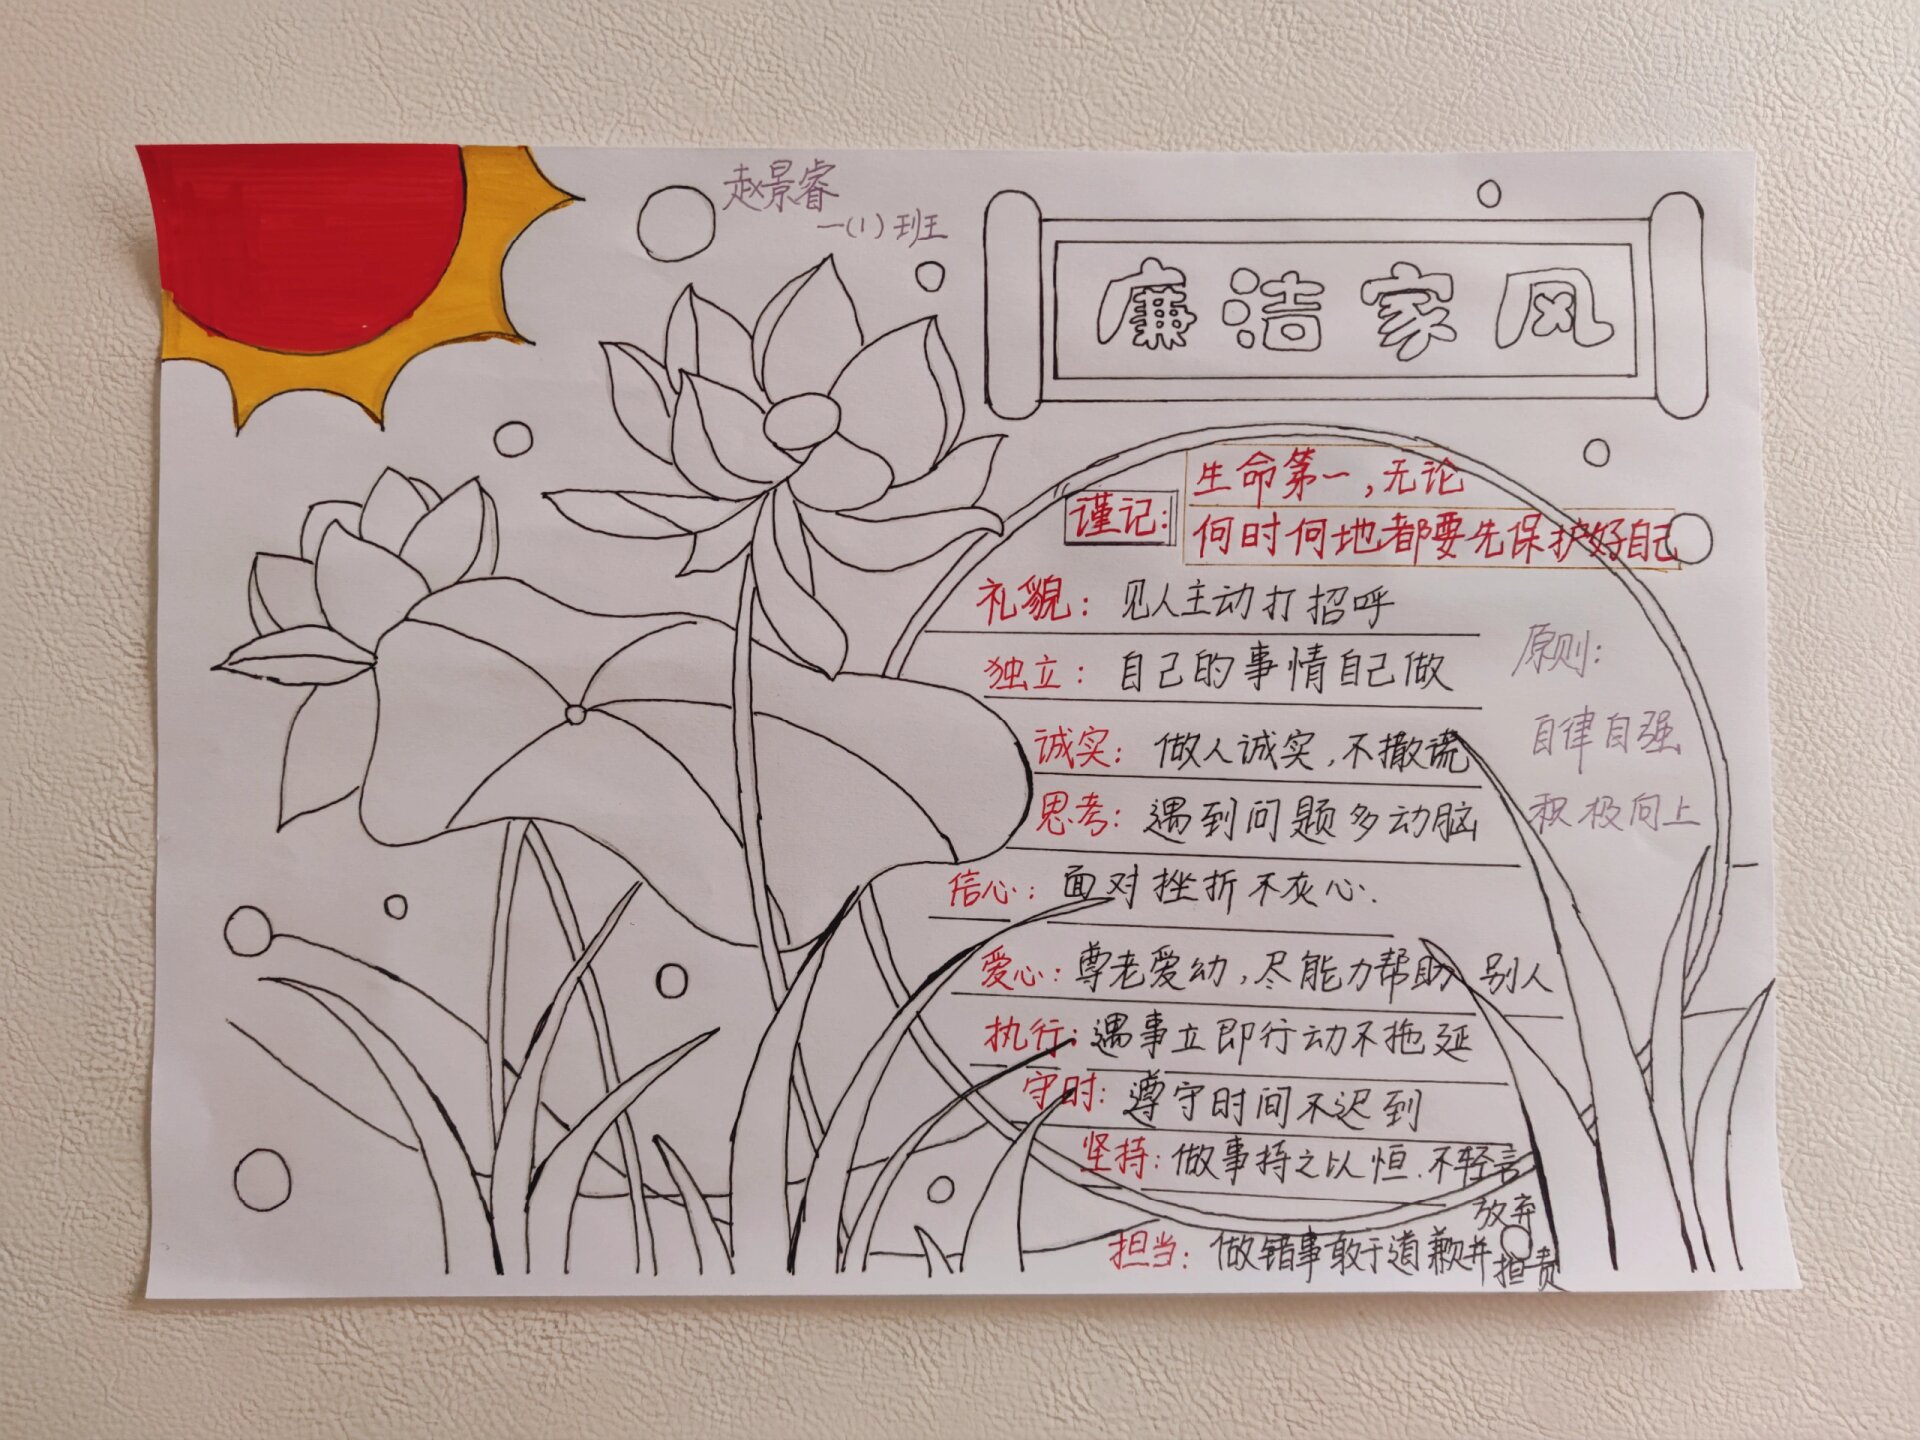 赵景睿
一(1)班
廉洁家风
谨记:
生命第一,无论
何时何地都要先保护好自己
礼貌: 见人主动打招呼
独立: 自己的事情自己做
诚实: 做人诚实,不撒谎
思考: 遇到问题多动脑
信心: 面对挫折不灰心.
爱心: 尊老爱幼,尽能力帮助别人
执行: 遇事立即行动不拖延
守时: 遵守时间不迟到
坚持: 做事持之以恒.不轻言
放弃
担当: 做错事敢于道歉并
担责
原则:
自律自强
积极向上